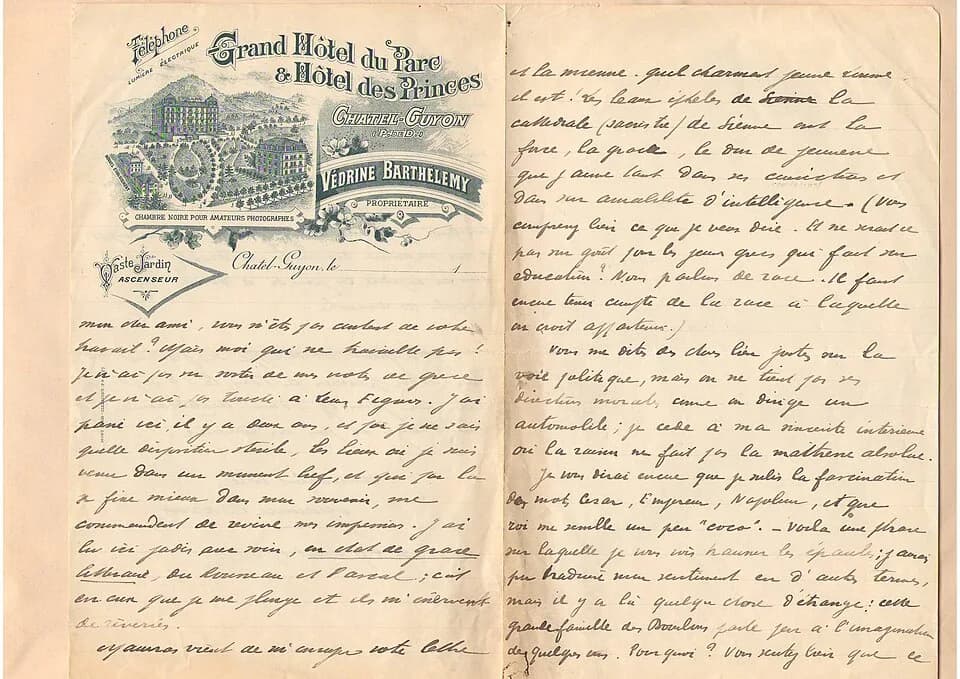 Téléphone
Lumière Électrique
Grand Hôtel du Parc
& Hôtel des Princes
Chatel-Guyon
(P. de D.)
Védrine Barthelemy
Propriétaire
Chambre noire pour amateurs photographes
Vaste Jardin
Ascenseur
Chatel-Guyon, le 1
mon cher ami, vous n'êtes pas content de votre
travail? Mais moi qui ne travaille pas!
Je n'ai pas su sortir de mes notes de Grece
et je n'ai pas touché à Leurs Figures. J'ai
passé ici, il y a deux ans, et par je ne sais
quelle disposition sterile, les lieux où je suis
venu dans un moment bref, et qui par là
se fixe mieux dans mon souvenir, me
commandent de revivre mes impressions. J'ai
lu ici jadis avec soin, en etat de grace
litteraire, du Rousseau et Pascal; c'est
en eux que je me plonge et ils m'énervent
de rêveries.
Maurras vient de m'envoyer votre lettre
et la mienne. quel charmant jeune homme
il est! Les beaux éphebes de Sienne la
cathédrale (sacristie) de Sienne ont la
force, la grace, le don de jeunesse
que j'aime tant dans ses convictions et
dans son amabilité d'intelligence. (Vous
comprenez bien ce que je veux dire. Il ne serait ce
pas son goût pour les jeux grecs qui fait son
education? Nous parlons de race. Il faut
encore tenir compte de la race à laquelle
on croit appartenir.)
Vous me dites des choses bien justes sur la
voie politique, mais on ne tient pas ses
directions morales comme on dirige un
automobile; je cede à ma sincerité interieure
où la raison ne fait pas la maîtresse absolue.
Je vous dirai encore que je subis la fascination
des mots Cesar, Empereur, Napoleon, et que
roi me semble un peu "coco". - Voila une phrase
sur laquelle je vous vois hausser les épaules; j'aurais
pu traduire mon sentiment en d'autres termes,
mais il y a là quelque chose d'étrange: cette
grande famille des Bourbons parle peu à l'imagination
de quelques uns. Pourquoi? Vous sentez bien que ce